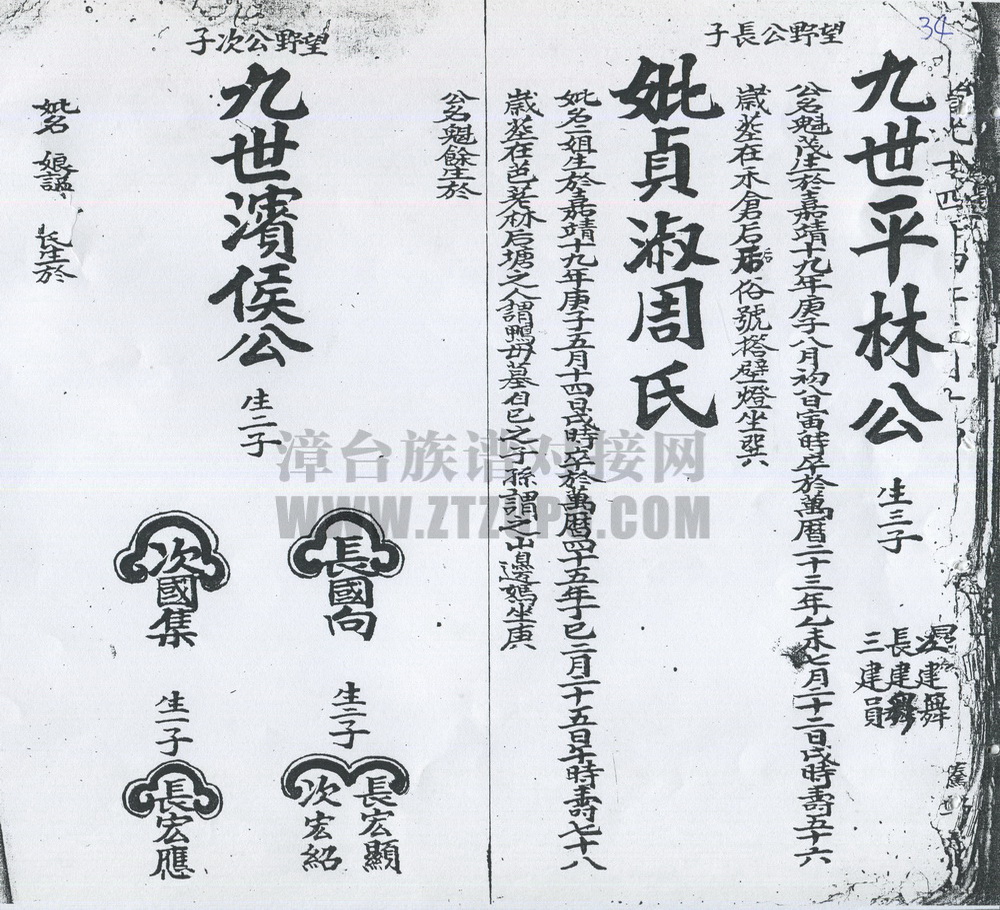 34
望野公長子
九世平林公
生三子
次建舞
長建
三建員
公名魁茂生於嘉靖十九年庚子八月初八日寅時卒於萬曆二十三年乙未七月二十二日戌時壽五十六
歲葬在禾倉后 俗號搭壁燈坐巽六
妣貞淑周氏
妣名二姐生於嘉靖十九年庚子五月十四日戌時卒於萬曆四十五年丁巳二月二十五日午時壽七十八
歲葬在芭茫林后塘之人謂鴨母墓自己之子孫謂之山邊媽坐庚
望野公次子
公名魁餘生於
九世濱侯公
生二子
長國向
生二子
長宏顯
次宏紹
次國集
生一子
長宏應
妣名 娘謚 生於
漳台族谱对接网